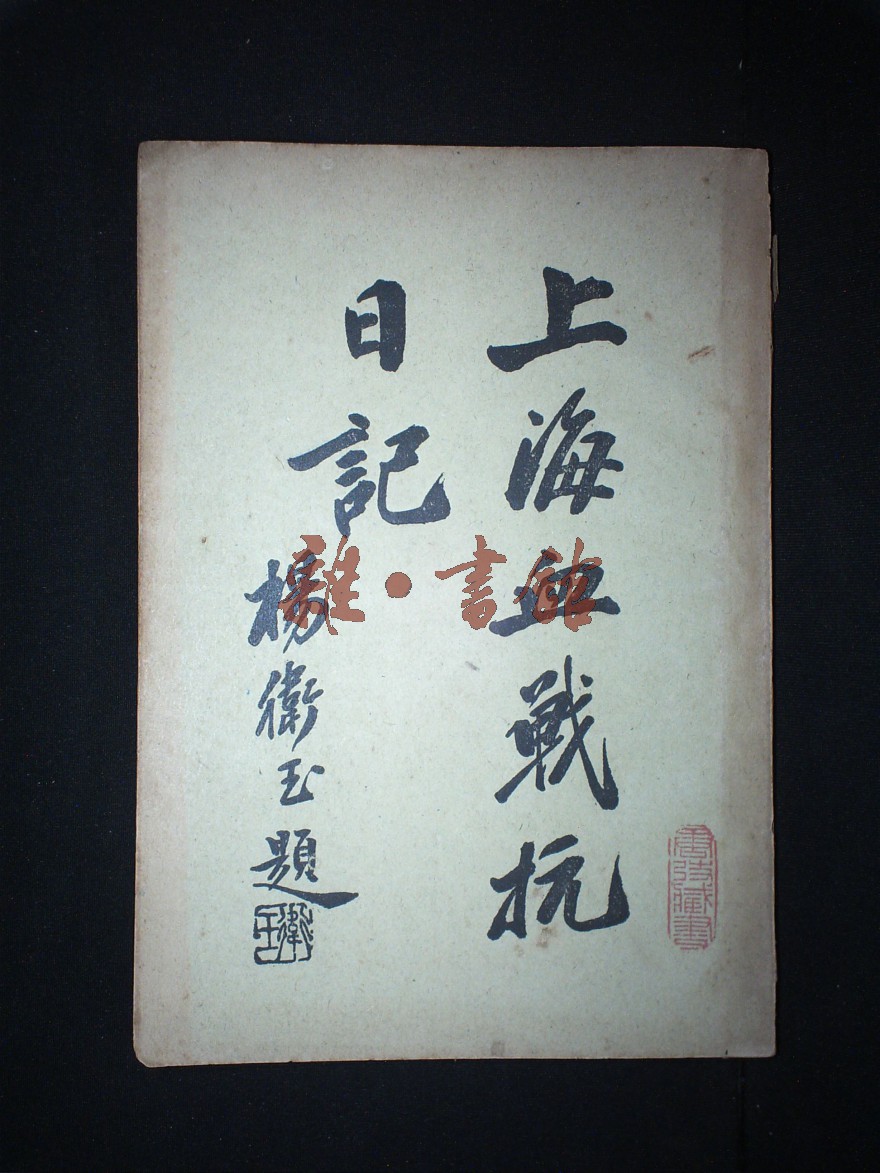 上海血戰抗
日記
楊衛玉題
衛玉
唐弢藏書
雜·書館